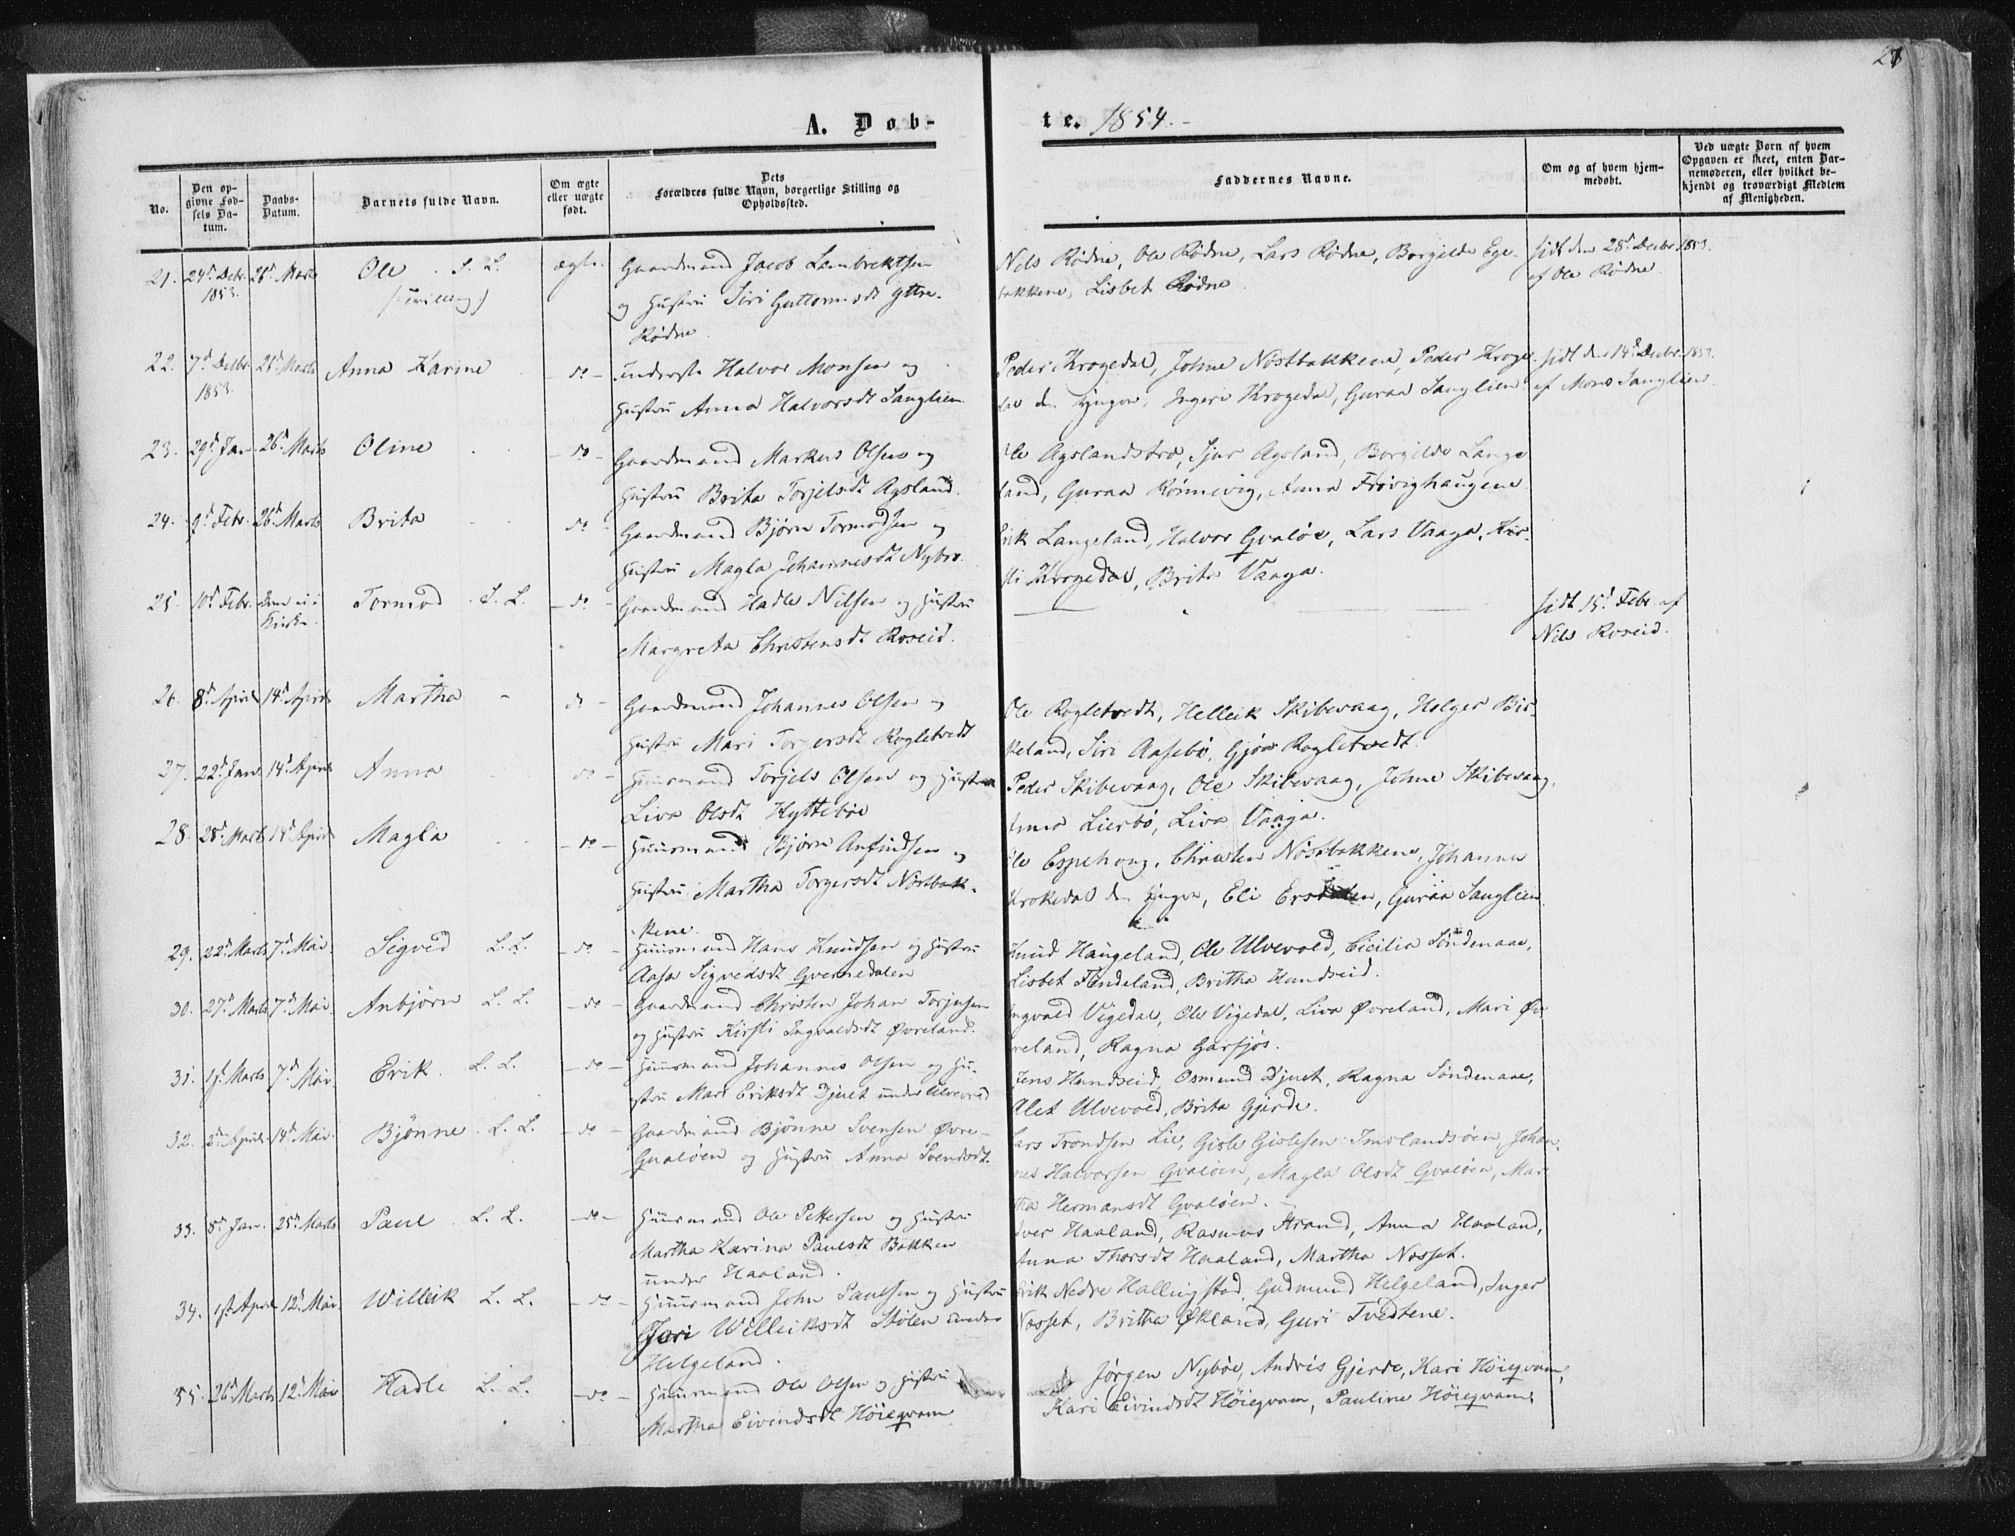 27
A. Døb-
te. 1854.
No.
Den opgivne Fødsels Datum.
Daabs-Datum.
Barnets fulde Navn.
Om ægte eller uægte født.
Dets Forældres fulde Navn, borgerlige Stilling og Opholdssted.
Faddernes Navne.
Om og af hvem hjemmedøbt.
Ved uægte Børn af hvem Opgaven er skeet, enten Barnemoderen, eller hvilket bekjendt og troværdigt Medlem af Menigheden.
21. 24d Decbr. 1853. 26d Marts Ole S. L. ægte. Gaardmand Jacob Lambrektsen
og Hustru Siri Guttormsdt Yttre-
Rødne.
Nils Rødne, Ole Rødne, Lars Rødne, Borgilde Ege-
bakkene, Lisbet Rødne
hjdt den 28d Decbr 1853.
af Ole Rødne.
22. 7d Decbr 1853. 26d Marts Anna Karine do Inderste Halvor Monsen og
Hustru Anna Halvorsdt Sanglien
Peder Krogedal, Johne Nostbakkene, Peder Kroge-
dal den yngre, Ingeri Krogedal, Guraa Sanglien
hjdt den 14d Decbr 1853.
af Mons Sanglien.
23. 29d Jan. 26d Marts Oline do Gaardmand Markus Olsen og
Hustru Brita Torjelsdt Agsland.
Ole Agslandstrø, Sjur Agsland, Borgilde Lange
land, Guraa Rønnevig, Anna Frøvighaugene
24. 9d Febr. 26d Marts Brita do Gaardmand Bjørn Tormodsen og
Hustru Magla Johannesdt Nybrø.
Erik Langeland, Halvor Qvaløe, Lars Vaaga, Kir-
sti Krogedal, Brita Vaaga.
25. 10d Febr. Tormod S. L. do Gaardmand Hadle Nilsen og Hustru
Margreta Christensdt Roseid.
hjdt 15d Febr. af
Nils Roseid.
26. 8d April 14d April Martha do Gaardmand Johannes Olsen og
Hustru Mari Torgersdt Rogletvedt
Ole Rogletvedt, Helleik Skibevaag, Holger Bir-
keland, Siri Aasebø, Gjøa Rogletvedt.
27. 22d Jan. 14d April Anna do Huusmand Torjels Olsen og Hustru
Liva Olsdt Hyttebøe
Peder Skibevaag, Ole Skibevaag, Johne Skibevaag,
Anna Lierbø, Liva Vaaga.
28. 28d Marts 14d April Magla do Huusmand Bjørn Anfindsen og
Hustru Martha Torgersdt Nostbak-
kene.
Ole Espehoug, Christen Nøstbakkene, Johannes
Krokedal den yngre, Eli, Guraa Sanglien
29. 22d Marts 7d Mai Sigved L. L. do Huusmand Hans Knudsen og Hustru
Aasa Sigvedsdt Qvernedalen
Knud Haugeland, Ole Ulvevold, Cicilia Søndenaae,
Lisbet Tendeland, Britha Hundseid.
30. 27d Marts 7d Mai. Anbjørn L. L. do Gaardmand Christen Johan Torjusen
og Hustru Kirsti Ingvaldsdt Øvreland.
Ingvald Vigedal, Ole Vigedal, Liva Øvreland, Mari Øv-
reland, Ragna Garsjøs.
31. 1st Marts 7d Mai. Erik L. L. do Huusmand Johannes Olsen og Hu-
stru Mari Eriksdt Djuet under Ulvevold
Jens Hundseid, Osmund Djuet, Ragna Søndenaae,
Alet Ulvevold, Brita Gjerde.
32. 2den April 14d Mai. Bjønne L. L. do Gaardmand Bjønne Svensen Øvre-
Qvaløen og Hustru Anna Svendsdt.
Lars Trondsen Lie, Gisle Gislesen Imslandsøen, Johan-
nes Halvorsen Qvaløen, Magla Olsdt Qvaløen, Mar
tha Hermansdt Qvaløen.
33. 5d Jan. 25d Marts Paul L. L. do Huusmand Ole Pettersen og Hustru
Martha Karina Paulsdt Bakken
under Haaland.
Iver Haaland, Rasmus Strand, Anna Haaland,
Anna Thorsdt Haaland, Martha Nosset.
34. 1st April 12d Mai. Willeik L. L. do Huusmand John Paulsen og Hustru
Jori Willeiksdt Stølen under
Helgeland.
Erik Nedre Hallingstad, Gudmund Helgeland, Inger
Nosset, Britha Økland, Guri Tvedtene.
35. 26d Marts 12d Mai Hadle L. L. do Huusmand Ole Olsen og Hustru
Martha Eivindsdt Høieqvam
Jørgen Nybøe, Andris Gjerde, Kari Høieqvam,
Kari Eivindsdt Høieqvam, Pauline Høieqvam.